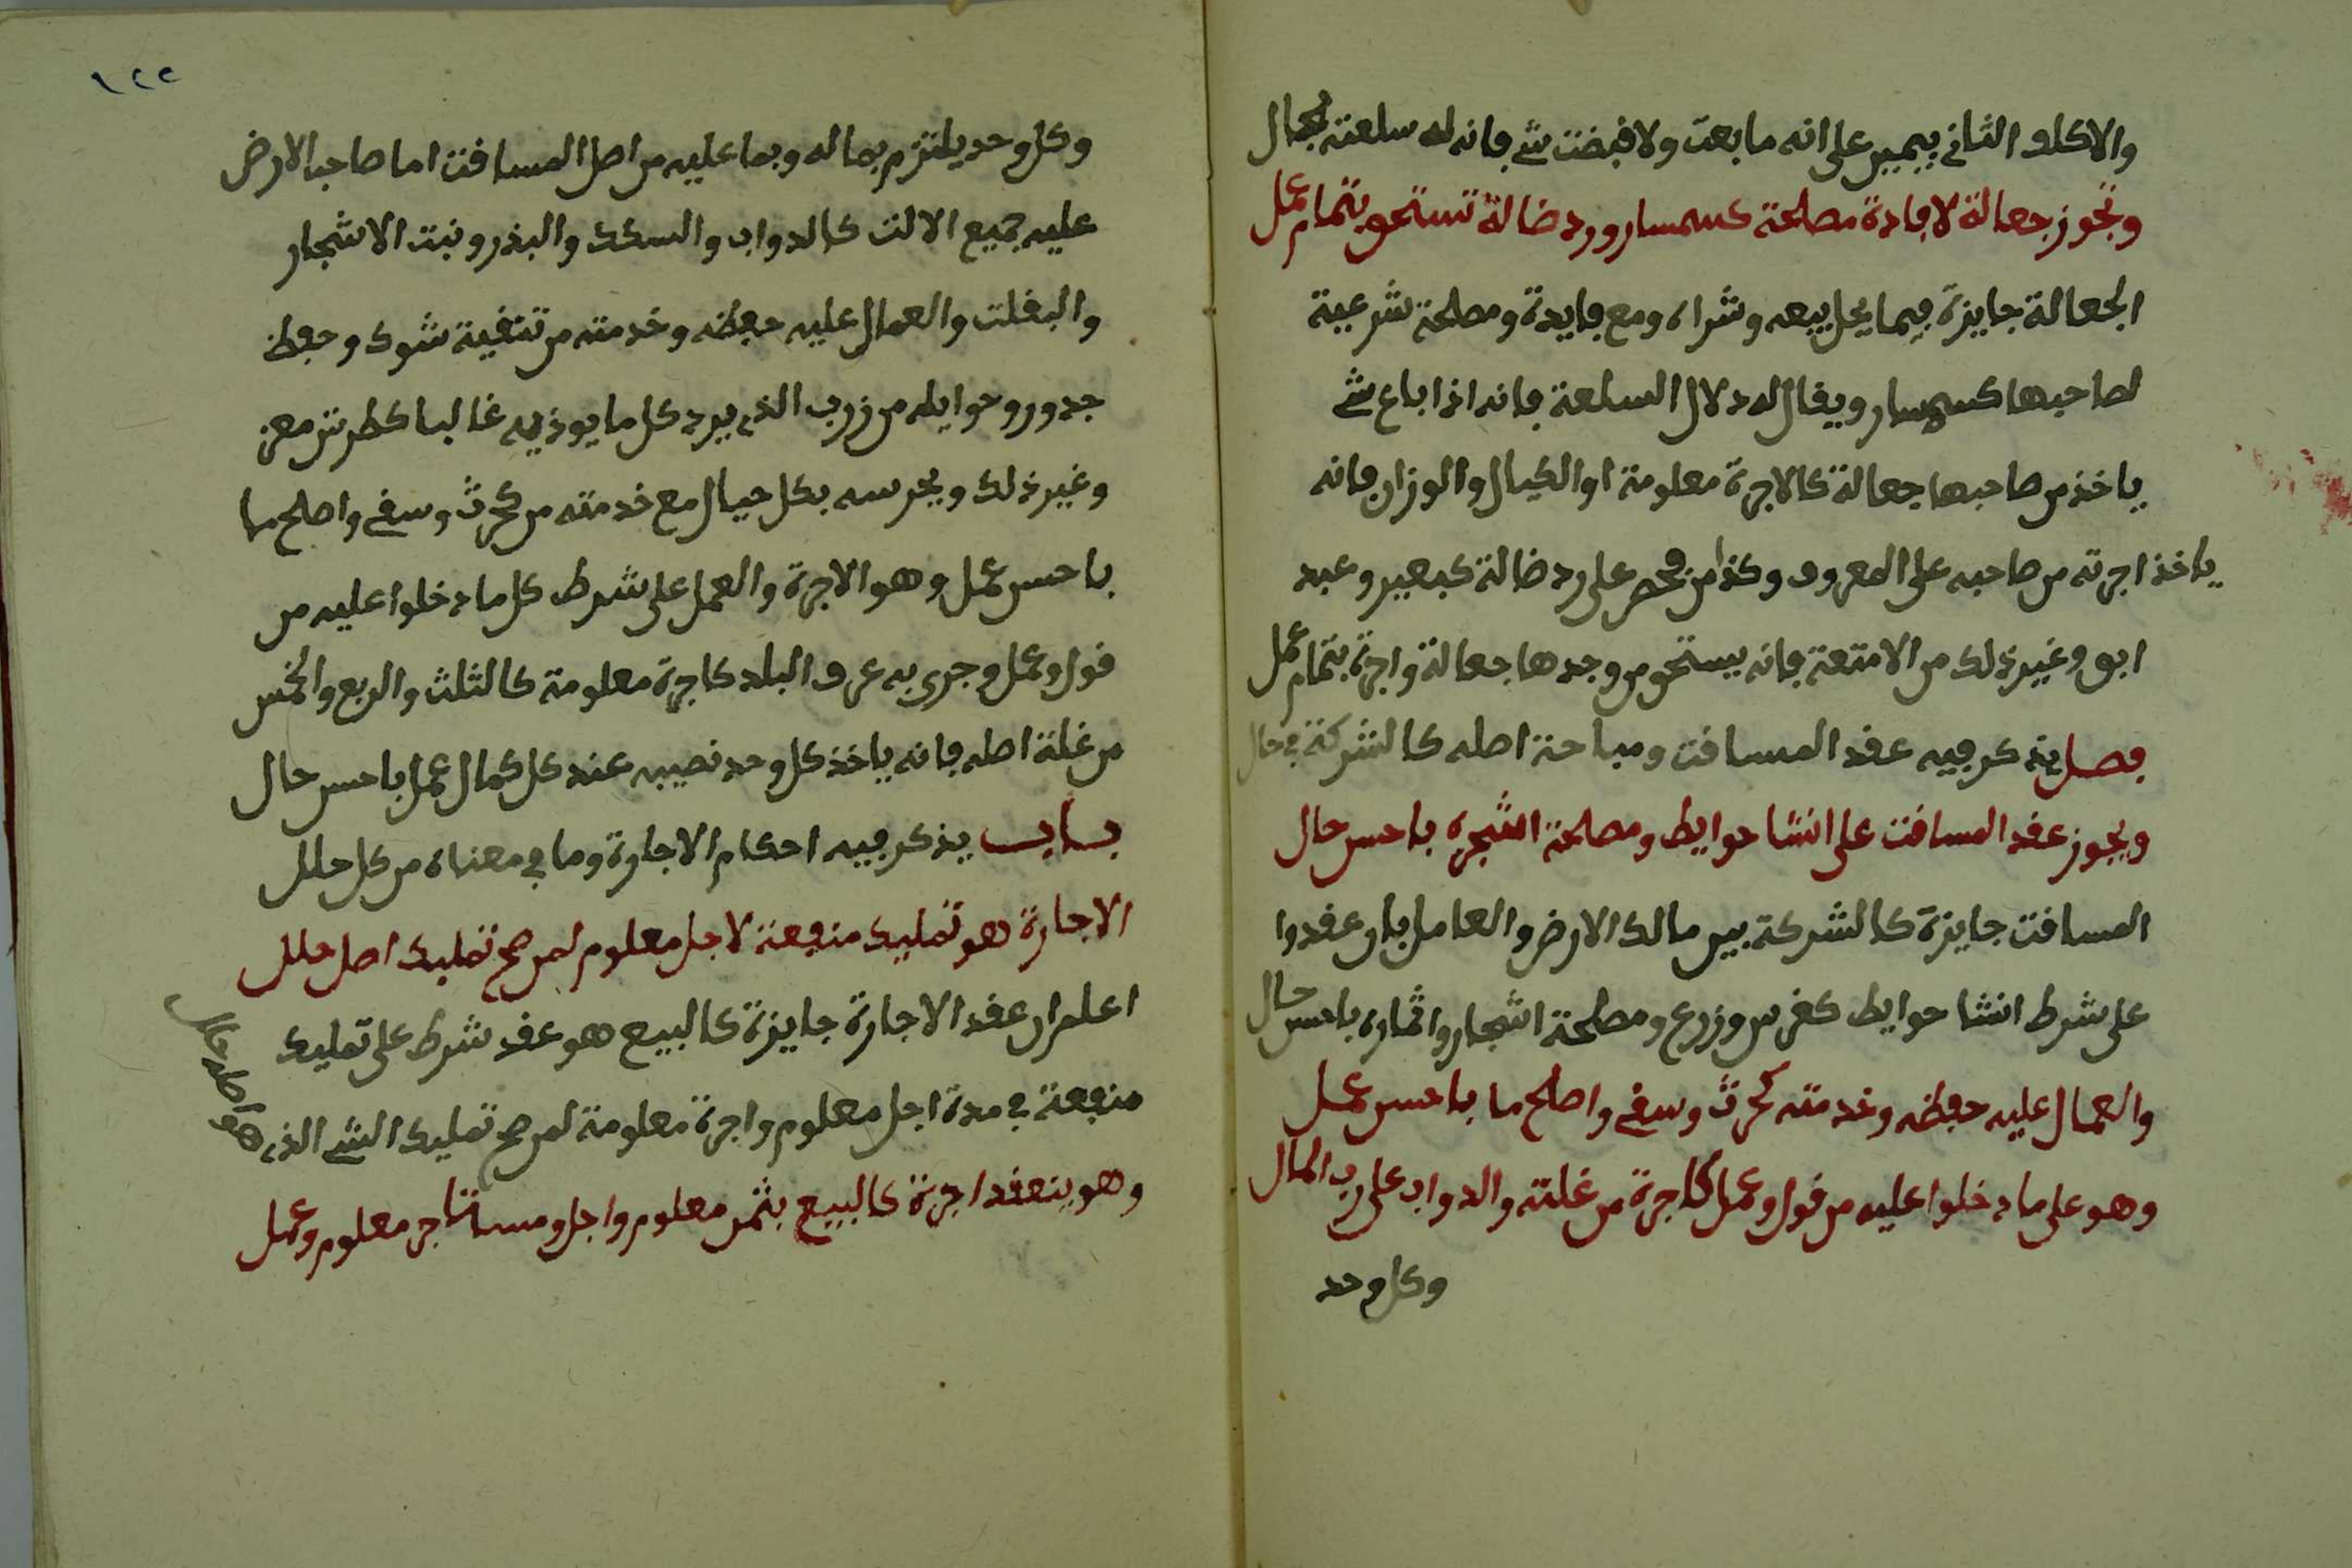 والاكلو الثاني بيمين على انه ما بعت ولا قبضت شي فانه له سلعته بحال
وتجوز جعالة لافادة مصلحة كسمسار ورد ضالة تستحق بتمام عمل
الجعالة جايزة فيما يحل بيعه وشراه ومع فايدة ومصلحة شرعية
لصاحبها كسمسار ويقال له دلال السلعة فانه اذا باع شي
ياخذ من صاحبها جعالة كالاجرة معلومة او الكيال والوزان فانه
ياخذ اجرته من صاحبه على المعروف وكذا من على رد ضالة كبعير وعبد
ابق وغير ذلك من الامتعة فانه يستحق من وجدها جعالة واجرة بتمام عمل
فصل يذكر فيه عقد المساقت ومباحة اصله كالشركة في حال
ويجوز عقد المساقت على انشا حوايط ومصلحة الشجره باحسن حال
المساقت جايزة كالشركة بين مالك الارض والعامل بان عقدوا
على شرط انشا حوايط كغرس وزرع ومصلحة اشجار واثماره باحسن حال
والعمال عليه حفظه وخدمته كحرث وسقي واصلح ما باحسن عمل
وهو على ما دخلوا عليه من قول وعمل كاجرة من غلته والدواب على رب المال
وكل وحد
١٢٢
وكل وحد يلتزم بماله وبما عليه من اصل المساقت اما صاحب الارض
عليه جميع الالت كالدواب والسكك والبذر ونبت الاشجار
والبغلت والعمال عليه حفظه وخدمته من تنقية شوك وحفظ
جدور وحوايله من زرب الذي يرد كل ما يوذيه غالبا معز
وغير ذلك ويحرسه بكل حيال مع خدمته من كحرث وسقي واصلح ما
باحسن عمل وهو الاجرة والعمل على شرط كل ما دخلوا عليه من
قول وعمل وجرى به عرف البلد كاجرة معلومة كالثلث والربع والخمس
من غلة اصله فانه ياخذ كل وحد نصيبه عند كل كمال عمل باحسن حال
باب يذكر فيه احكام الاجارة وما في معناه من كل حلل
الاجارة هو تمليك منفعة لاجل معلوم لمن صح تمليك اصل حلل
اعلم ان عقد الاجارة جايزة كالبيع هو عقد شرط على تمليك
منفعة في مدة اجل معلوم واجرة معلومة لمن صح تمليك الشي الذي
هو اصله حلل
وهو ينعقد اجرة كالبيع بثمن معلوم واجل ومستاجر معلوم وعمل